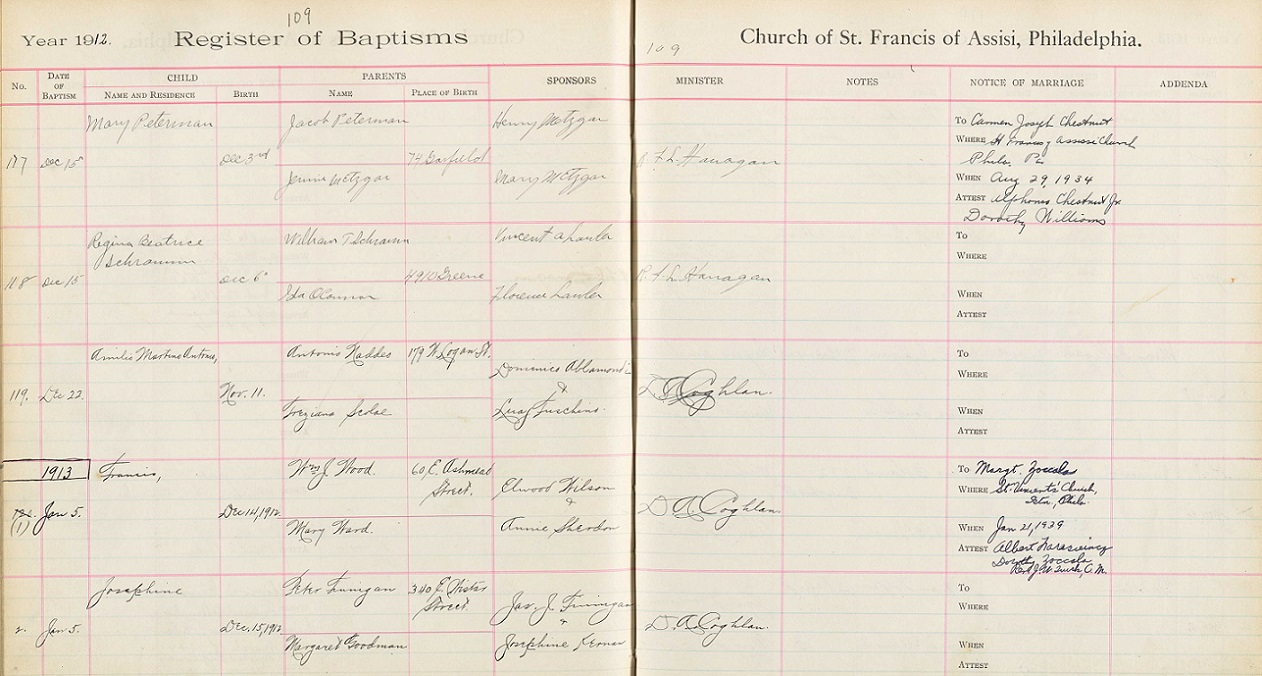 109
Year 1912. Register of Baptisms
109
Church of St. Francis of Assisi, Philadelphia.
No. DATE OF BAPTISM CHILD PARENTS SPONSORS MINISTER NOTES NOTICE OF MARRIAGE ADDENDA
NAME AND RESIDENCE BIRTH NAME PLACE OF BIRTH
Mary Peterman Jacob Peterman Henry Metzgar To Carmen Joseph Chestnut
WHERE St Francis Assissi Church
117 Dec 15 Dec 3rd 74 Garfield Hanagan Phila. Pa
Jennie Metzgar Mary Metzgar WHEN Aug 29, 1934
ATTEST Alphonso Chestnut Jr
Dorothy Williams
Regina Beatrice William T Schramm Vincent A Lawler To
Schramm WHERE
118 Dec 15 Dec 6 4910 Greene Hanagan
Florence Lawler WHEN
ATTEST
Martino Antonio, Antonio Naddeo 179 W. Logan St. To
Domenico WHERE
119. Dec 22. Nov. 11. & D A Coghlan.
WHEN
ATTEST
1913 Francis, Wm J. Wood. 60 E. Ashmead To Margt. Zoccola
Street. Elwood Wilson WHERE St. Vincent's Church,
Phila.
(1) Jan 5. Dec 14, 1912 & D. A. Coghlan
Mary Ward. Annie WHEN Jan 21, 1939
ATTEST Albert
Dorothy Zoccola
C. M.
Josephine Peter Finnigan 340 E. Wister To
Street. Jas. J. Finnigan WHERE
2. Jan 5. Dec. 15, 1912 & D. A. Coghlan.
Margaret Goodman Josephine WHEN
ATTEST